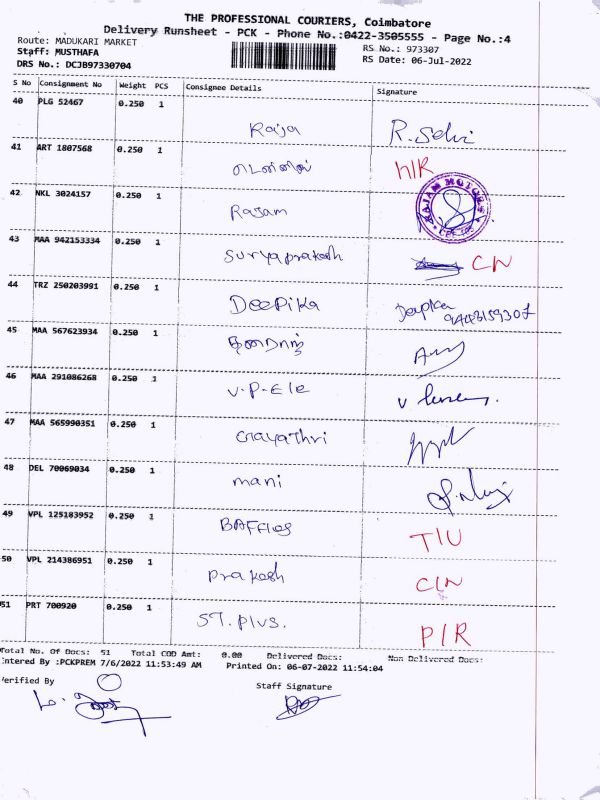 THE PROFESSIONAL COURIERS, Coimbatore
Delivery Runsheet - PCK - Phone No.:0422-3505555 - Page No.:4
Route: MADUKARI MARKET
RS No.: 973307
Staff: MUSTHAFA
RS Date: 06-Jul-2022
DRS No.: DCJB97330704
S No Consignment No Weight PCS Consignee Details Signature
40 PLG 52467 0.250 1
Raja R. Selvi
41 ART 1807568 0.250 1
h/R
42 NKL 3024157 0.250 1
Rajam RAJAM MOTORS
43 MAA 942153334 0.250 1
Suryaprakash CN
44 TRZ 250203991 0.250 1
Deepika Deepika
45 MAA 567623934 0.250 1
46 MAA 291086268 0.250 1
V.P-Ele
47 MAA 565990351 0.250 1
Gayathri
48 DEL 70069034 0.250 1
mani
49 VPL 125183952 0.250 1
BAFFles T/U
50 VPL 214386951 0.250 1
Prakash C/N
51 PRT 700920 0.250 1
ST. Plus. P/R
Total No. Of Docs: 51 Total COD Amt: 0.00 Delivered Docs: Non Delivered Docs:
Entered By :PCKPREM 7/6/2022 11:53:49 AM Printed On: 06-07-2022 11:54:04
Verified By Staff Signature